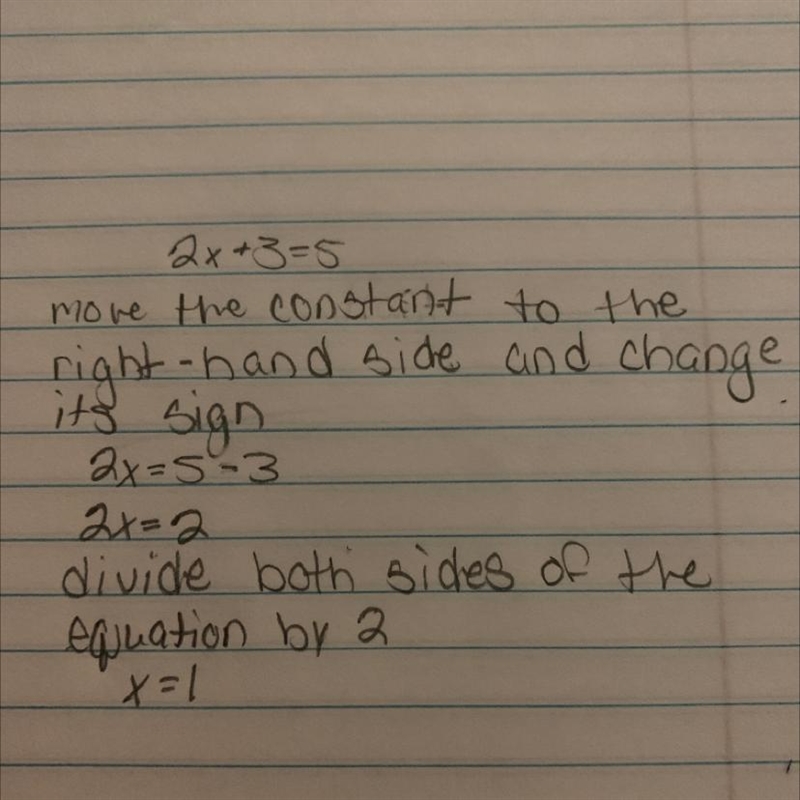 2x+3=5
move the constant to the
right-hand side and change
its sign
2x=5-3
2x=2
divide both sides of the
equation by 2
x=1